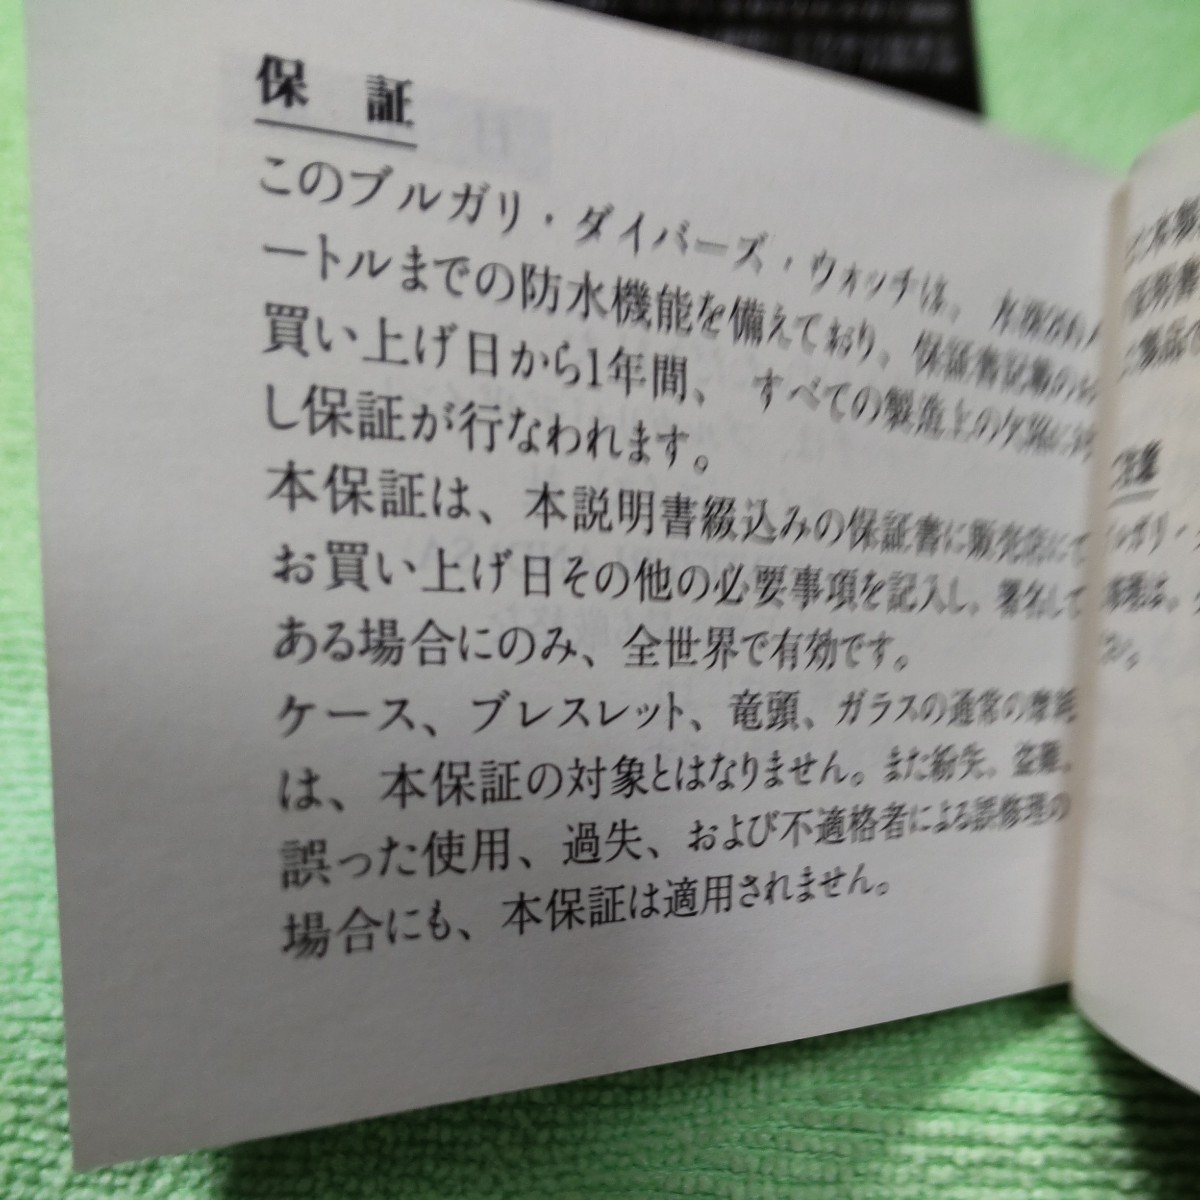 保 証
このブルガリ・ダイバーズ・ウォッチは、水深
ートルまでの防水機能を備えており、保証書記載のお
買い上げ日から1年間、すべての製造上の欠陥に対
し保証が行なわれます。
本保証は、本説明書綴込みの保証書に販売店にて
お買い上げ日その他の必要事項を記入し、署名して
ある場合にのみ、全世界で有効です。
ケース、ブレスレット、竜頭、ガラスの通常の摩耗
は、本保証の対象とはなりません。また紛失、盗難、
誤った使用、過失、および不適格者による誤修理の
場合にも、本保証は適用されません。